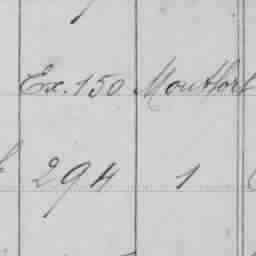 Ex. 150 Montfort
294 1